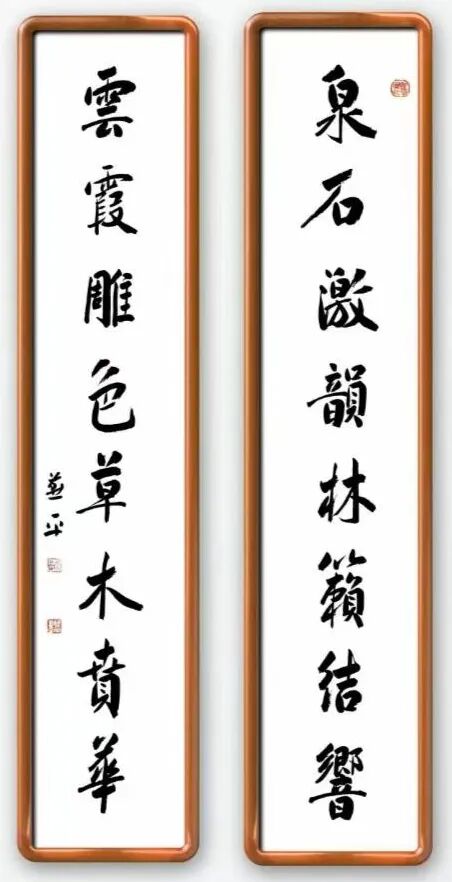 泉石激韻林籟結響
雲霞雕色草木賁華
燕平